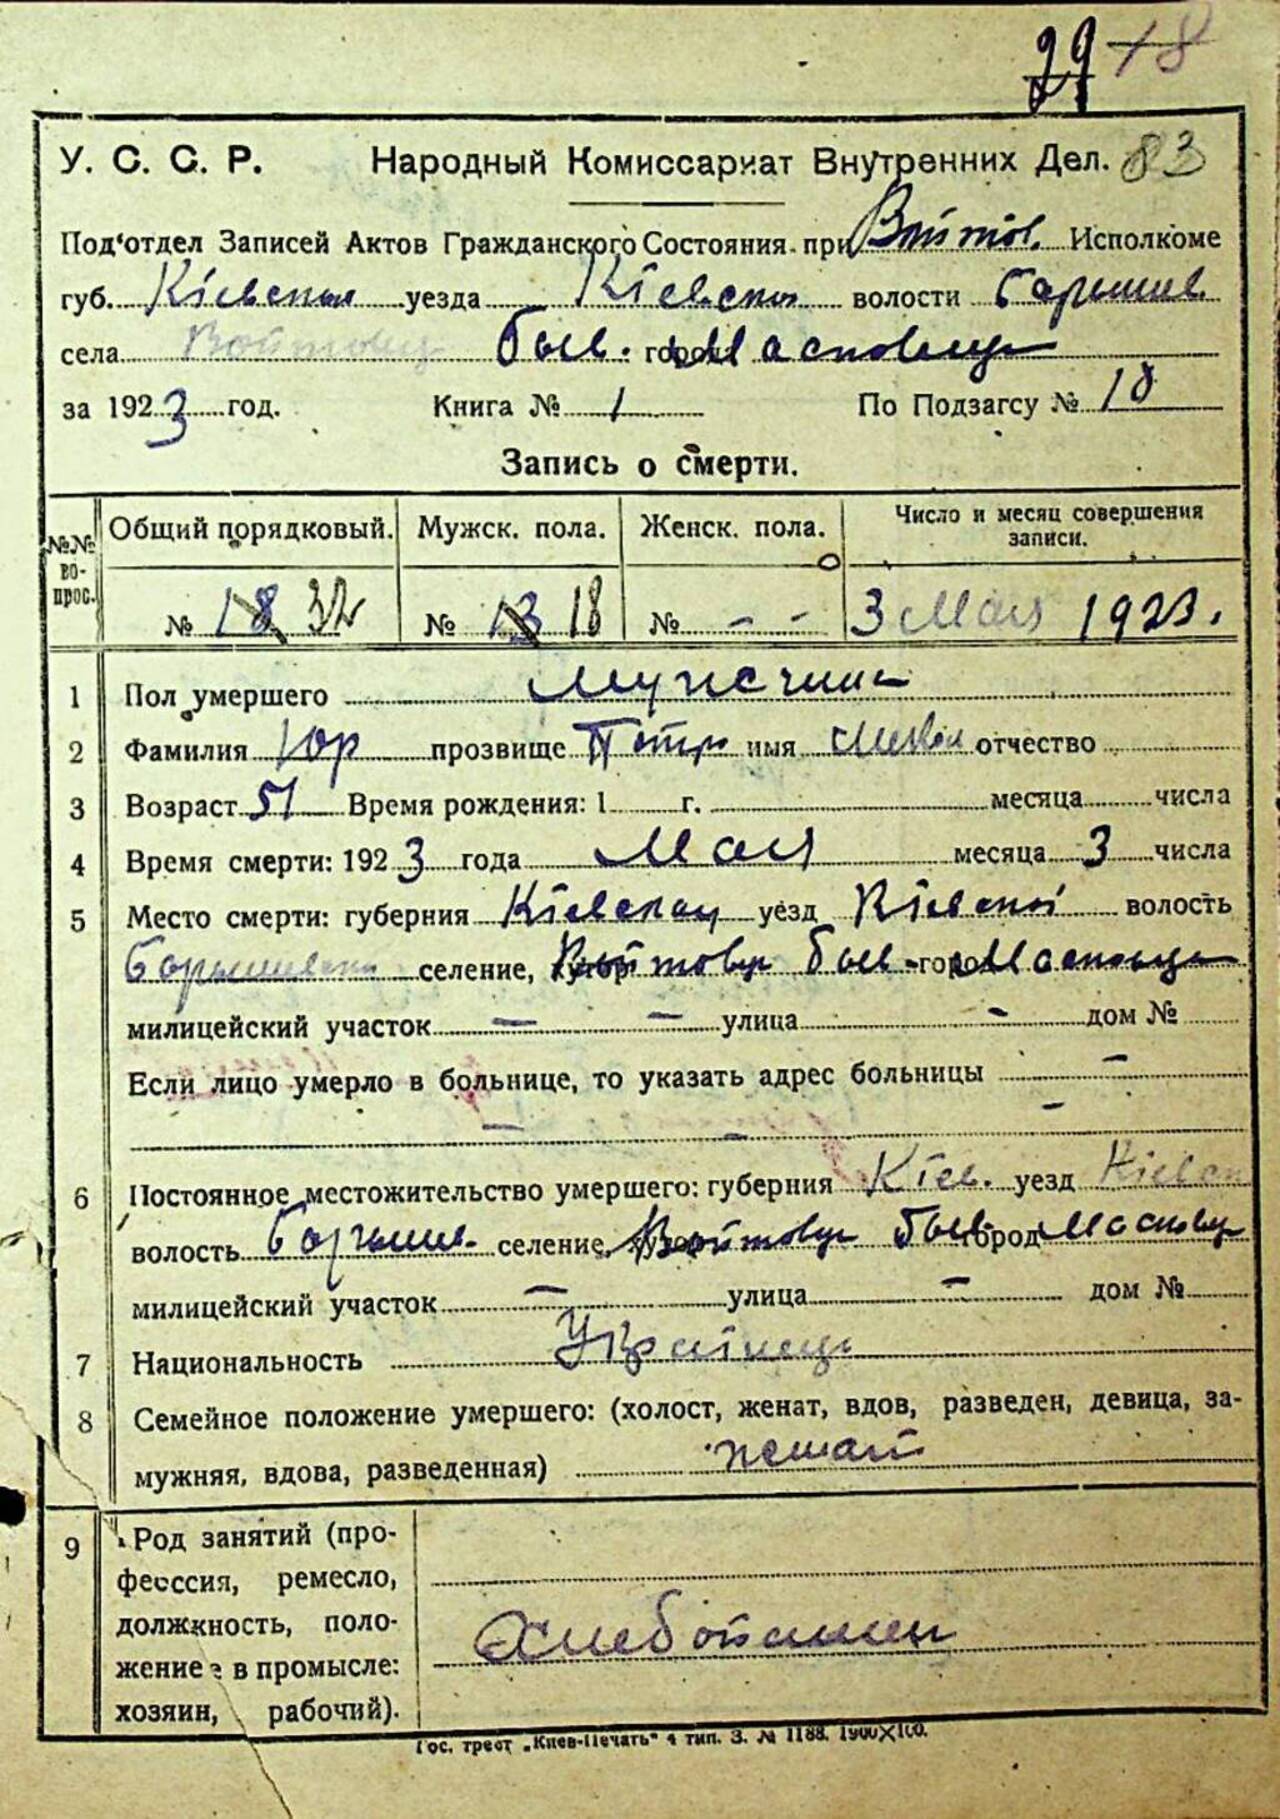 29 18
У. С. С. Р. Народный Комиссариат Внутренних Дел. 83
Под'отдел Записей Актов Гражданского Состояния при Войтов. Исполкоме
губ. Кіевская уезда Кіевской волости Барышев
села Войтовцы бывш. город
за 1923 год. Книга № 1 По Подзагсу № 18
Запись о смерти.
№№ вопрос. Общий порядковый. Мужск. пола. Женск. пола. Число и месяц совершения записи.
№ 18 32 № 13 18 № - - 3 Мая 1923.
1 Пол умершего Мужчина
2 Фамилия Юр прозвище Петро имя отчество
3 Возраст 51 Время рождения: 1 г. месяца числа
4 Время смерти: 1923 года Мая месяца 3 числа
5 Место смерти: губерния Кіевская уезд Кіевской волость
селение, хутор Войтовцы город
милицейский участок — — улица - дом №
Если лицо умерло в больнице, то указать адрес больницы —
— — —
6 Постоянное местожительство умершего: губерния Кіев. уезд Кіевск
волость Барышев. селение, хутор Войтовцы город
милицейский участок — улица — дом №
7 Национальность Українець
8 Семейное положение умершего: (холост, женат, вдов, разведен, девица, за-
мужняя, вдова, разведенная) женат
9 Род занятий (про-
фессия, ремесло,
должность, поло-
жение в промысле:
хозяин, рабочий).
Хлебопашец
Гос. трест „Киев-Печать" 4 тип. З. № 1188. 1900X100.